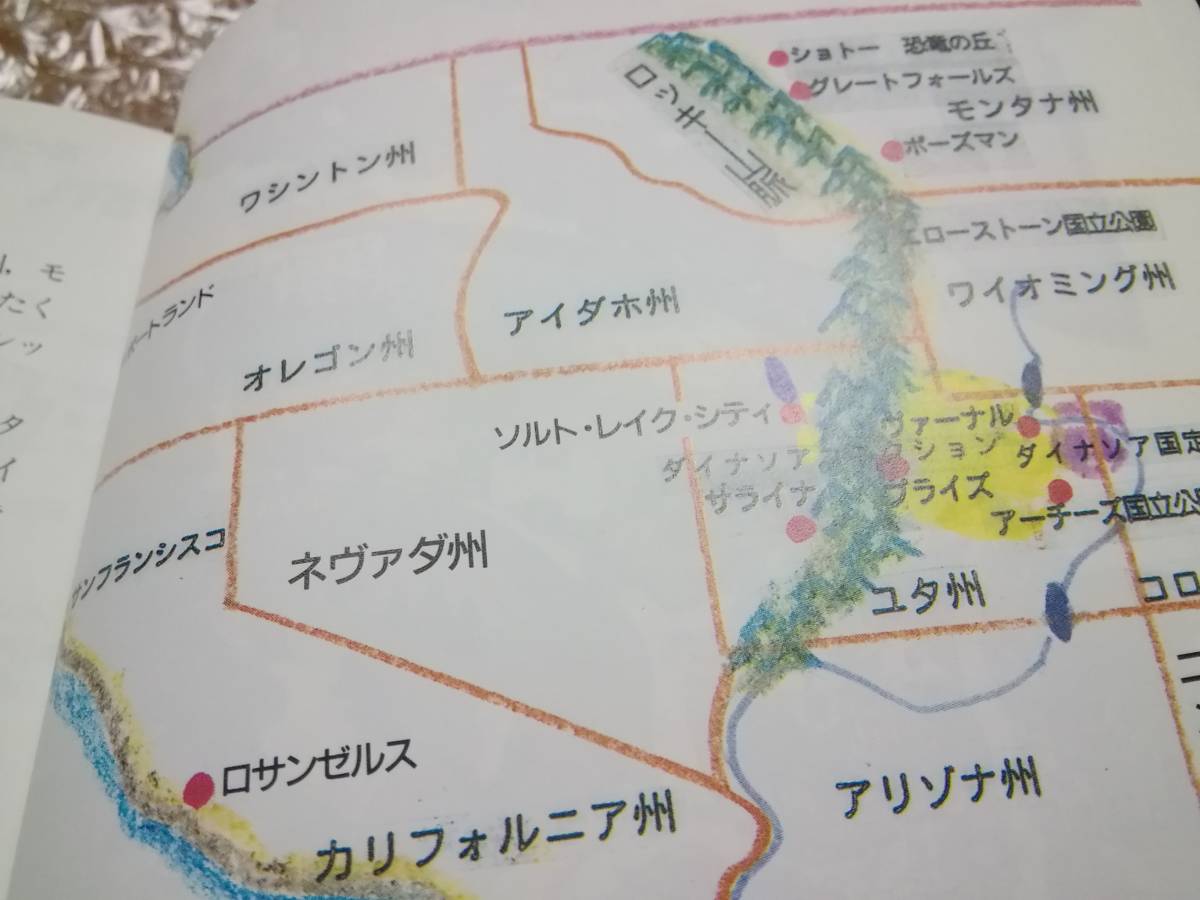 モ
たく
タ
イ
ショトー 恐竜の丘
グレートフォールズ
モンタナ州
ボーズマン
ロッキー山脈
ワシントン州
エローストーン国立公園
ワイオミング州
ポートランド
アイダホ州
オレゴン州
ソルト・レイク・シティ
ヴァーナル
ダイナソア
クション
ダイナソア国定
サライナ
プライズ
アーチーズ国立公
サンフランシスコ
ネヴァダ州
ユタ州
コロ
ロサンゼルス
アリゾナ州
カリフォルニア州